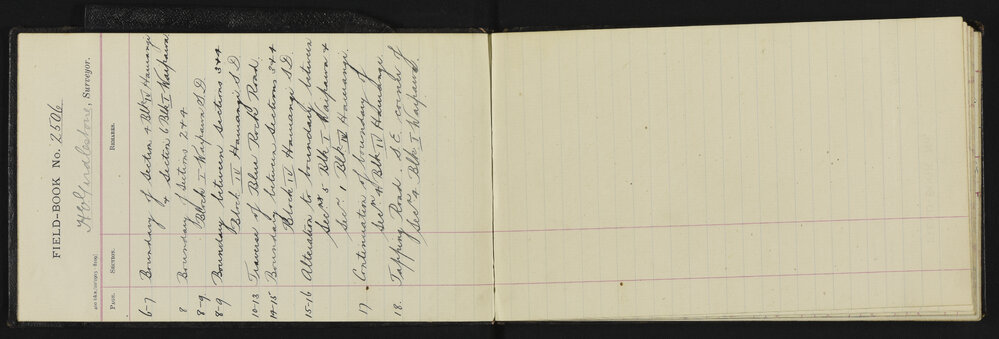 FIELD-BOOK No. 2506
H E Girdlestone, Surveyor.
PAGE. SECTION. REMARKS.
6-7 Boundary of Section 4 Blk IV Haurangi
& Section 6 Blk I Waipawa
8 Boundary of Sections 2 & 4
8-9. Block I Waipawa S.D
8-9 Boundary between sections 3 & 4
Block IV Haurangi S.D
10-13 Traverse of Blue Rock Road.
14-15 Boundary between Sections 3 & 4
Block IV Haurangi S.D.
15-16 Alteration to boundary between
Secns 5 Blk I Waipawa &
Secn 1 Blk IV Haurangi.
17. Continuation of boundary of
Secn 4 Blk IV Haurangi
18. Tapping Road. S.E. corner of
Secn 4 Blk I Waipawa